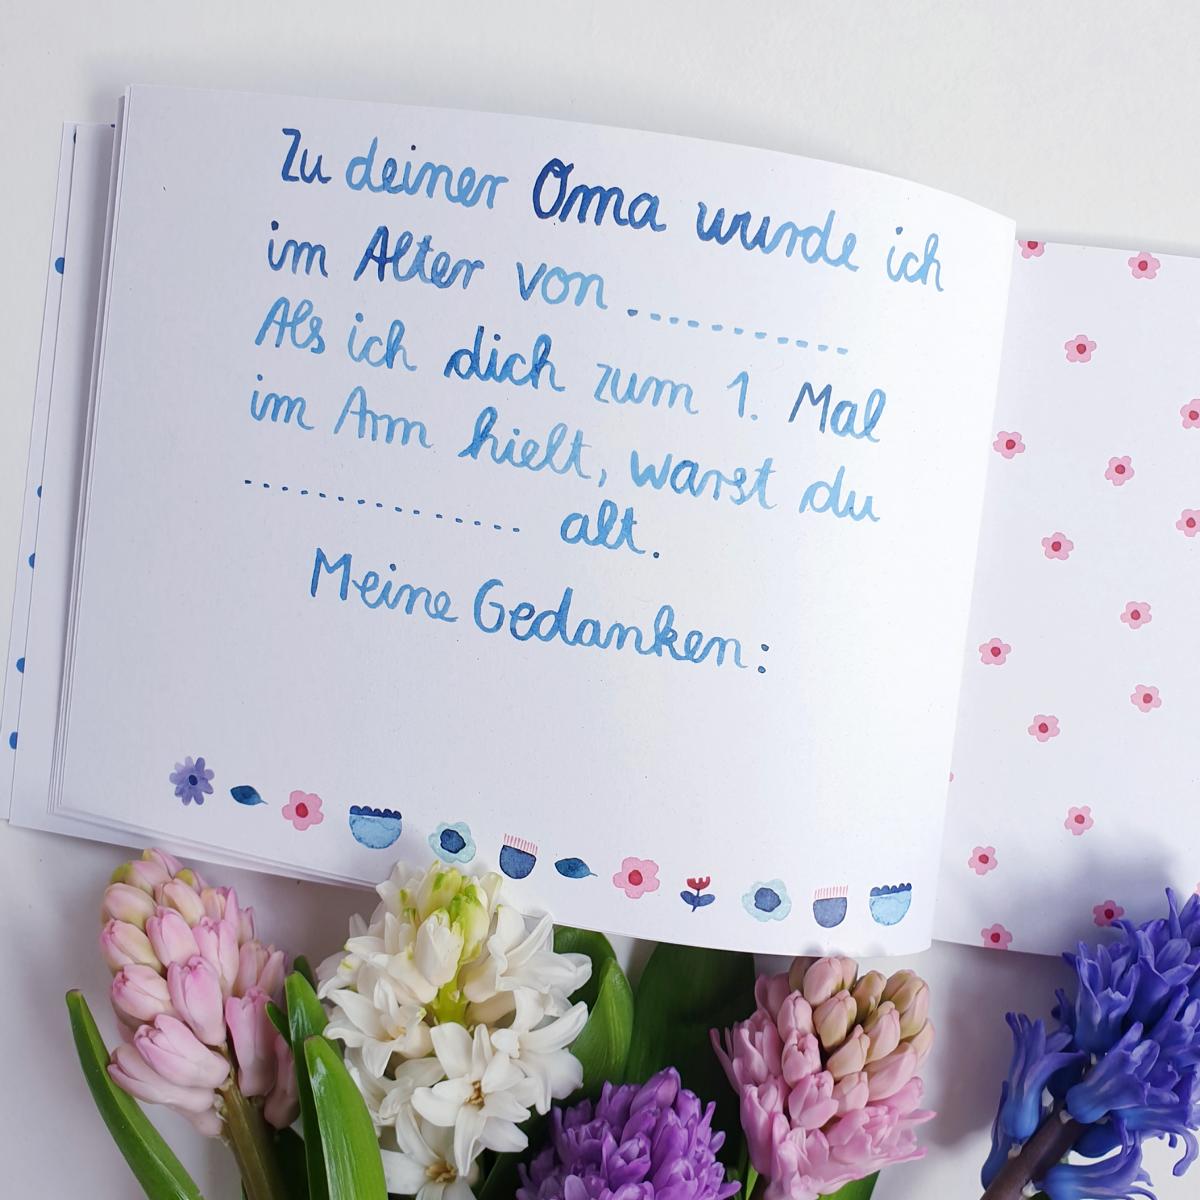 Zu deiner Oma wurde ich
im Alter von ............
Als ich dich zum 1. Mal
im Arm hielt, warst du
............... alt.
Meine Gedanken: